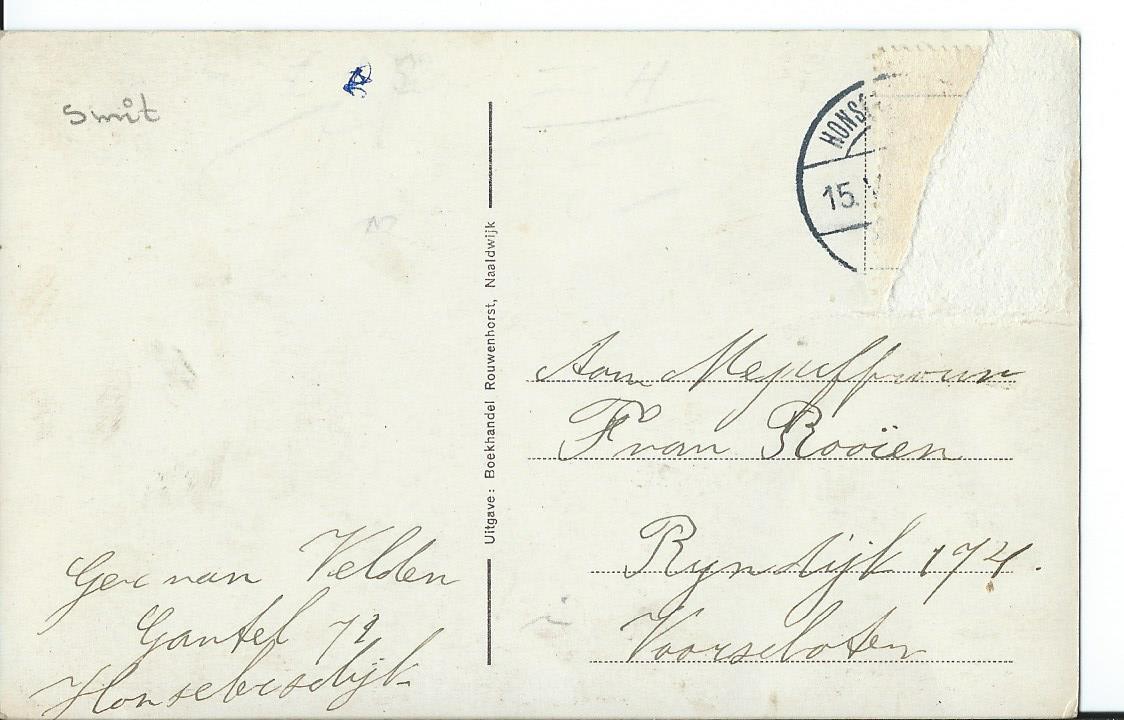 Smit
HONS
15.
Uitgave: Boekhandel Rouwenhorst, Naaldwijk
Aan Mejuffrouw
F van Rooïen
Ryndijk 174.
Voorschoten
Ger van Velden
Gantel 72
Honselersdijk